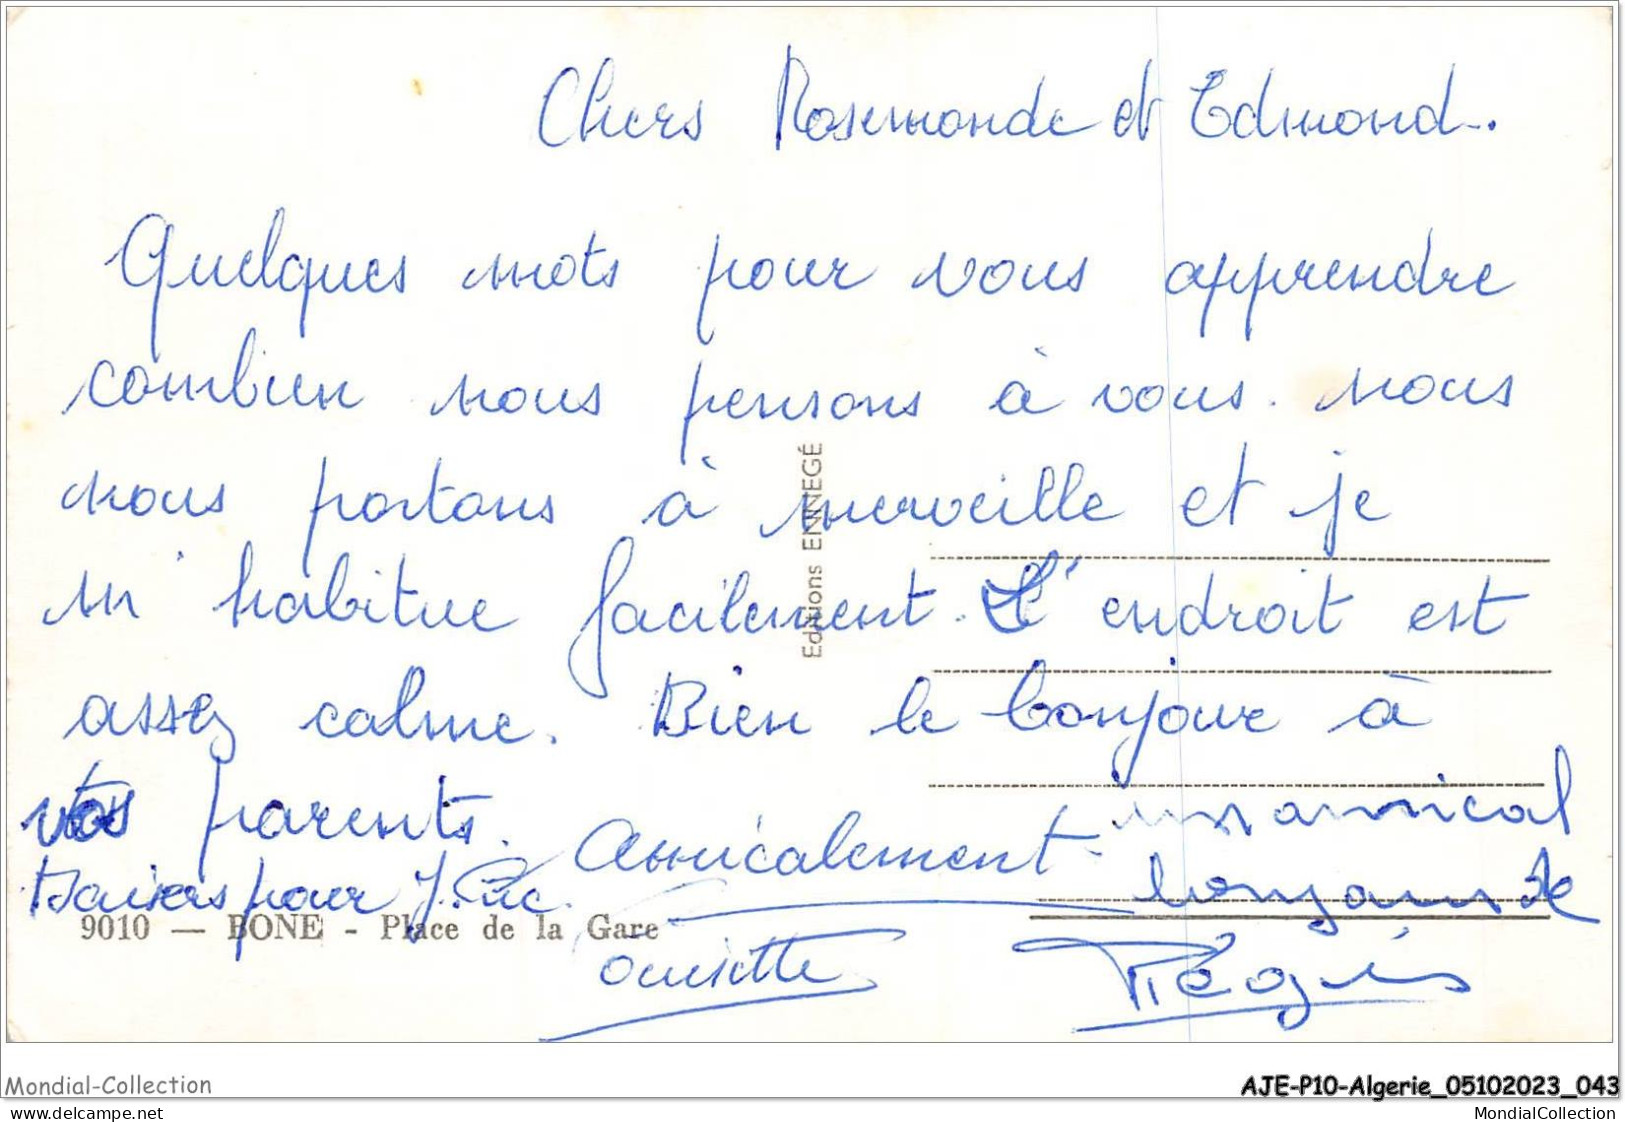 Chers Rosemonde et Edmond.
Quelques mots pour vous apprendre
combien nous pensons à vous. nous
nous portons à merveille et je
m'habitue facilement. L'endroit est
assez calme. Bien le bonjour à
vos parents.
Amicalement
un amical
baisers pour J. Luc.
bonjour de
9010 — BONE - Place de la Gare
Régis
Editions ENNEGÉ
Mondial-Collection
AJE-P10-Algerie_05102023_043
Tous droits réservés
MondialCollection